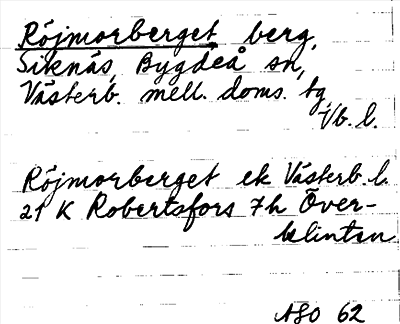 Röjmorberget berg,
Siknäs, Bygdeå sn,
Västerb. mell. doms. tg,
Vb. l.
Röjmorberget ek Västerb. l.
21 K Robertsfors 7h Över-
klinten
ASO 62